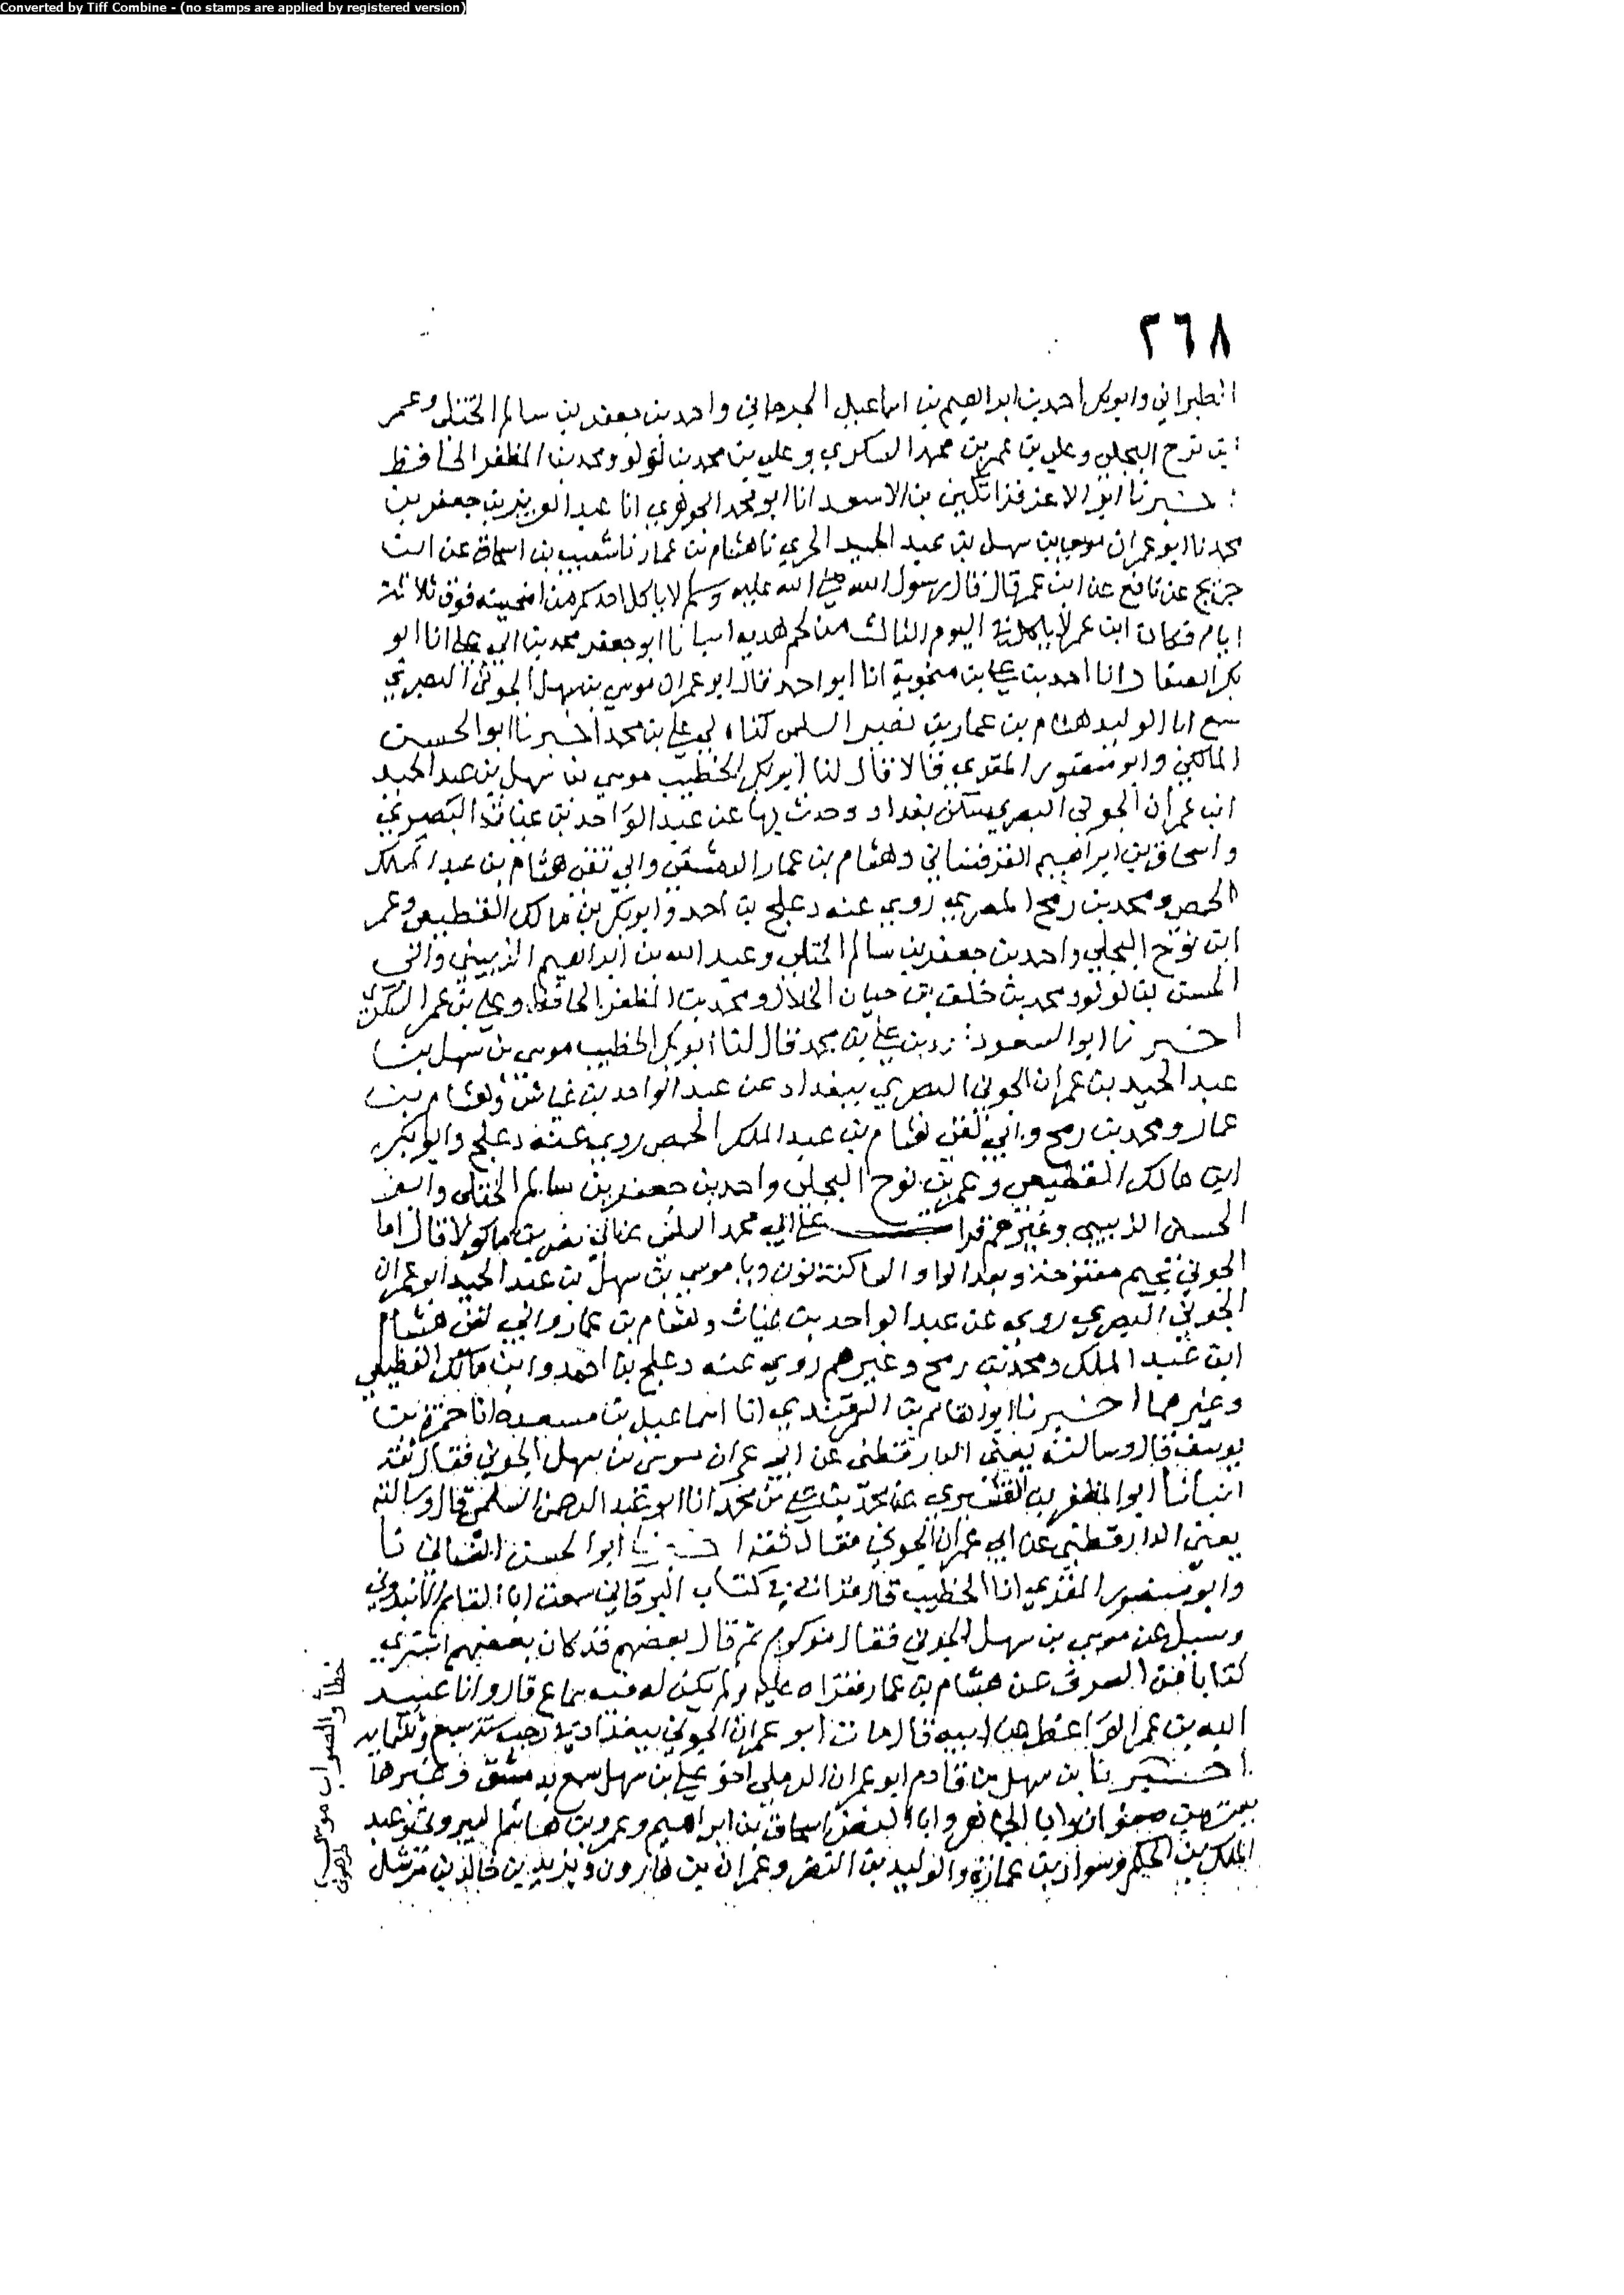 Converted by Tiff Combine - (no stamps are applied by registered version)
٢٦٨
الطبراني وابو بكر احمد بن ابراهيم بن اسماعيل الجرجاني واحمد بن جعفر بن سالم الختلي وعمر
ابن نوح البجلي وعلي بن عمر بن محمد السكري وعلي بن محمد بن لولو ومحمد بن المظفر الحافظ
اخبرنا ابو الاعز قراتكين بن الاسعد انا ابو محمد الجوهري انا عبد العزيز بن جعفر بن
محمد نا ابو عمران موسى بن سهل بن عبد الحميد الجوني نا هشام بن عمار نا شعيب بن اسحاق عن ابن
جريج عن نافع عن ابن عمر قال قال رسول الله صلى الله عليه وسلم لا ياكل احدكم من اضحيته فوق ثلاثة
ايام فكان ابن عمر لا ياكل اليوم الثالث من لحم هديه انبانا ابو جعفر محمد بن ابي علي انا ابو
بكر الصفار انا احمد بن علي بن منجوية انا ابو احمد قال ابو عمران موسى بن سهل الجوني البصري
سمع ابا الوليد هشام بن عمار بن نصير السلمي كناه لي علي بن محمد اخبرنا ابو الحسن
المالكي وابو منصور المقري قالا قال لنا ابو بكر الخطيب موسى بن سهل بن عبد الحميد
ابو عمران الجوني البصري سكن بغداد وحدث بها عن عبد الواحد بن غياث البصري
واسحاق بن ابراهيم القرقساني وهشام بن عمار الدمشقي وابي تقي هشام بن عبد الملك
الحمصي ومحمد بن رمح المصري روى عنه دعلج بن احمد وابو بكر بن مالك القطيعي وعمر
ابن نوح البجلي واحمد بن جعفر بن سالم الختلي وعبد الله بن ابراهيم الزبيبي وابي
الحسن بن لولو ومحمد بن خلف بن حيان الخلال ومحمد بن المظفر الحافظ وعلي بن عمر السكري
اخبرنا ابو السعود بن علي بن محمد قال لنا ابو بكر الخطيب موسى بن سهل بن
عبد الحميد بن عمران الجوني البصري ببغداد عن عبد الواحد بن غياث وهشام بن
عمار ومحمد بن رمح وابي تقي هشام بن عبد الملك الحمصي روى عنه دعلج وابو بكر
ابن مالك القطيعي وعمر بن نوح البجلي واحمد بن جعفر بن سالم الختلي وابو
الحسين الزبيبي وغيرهم قرات على ابي محمد السلمي عن ابي نصر بن ماكولا قال اما
الجوني بجيم مفتوحة وبعد الواو الساكنة نون ويا موسى بن سهل بن عبد الحميد ابو عمران
الجوني البصري روى عن عبد الواحد بن غياث وهشام بن عمار وابي تقي هشام
ابن عبد الملك ومحمد بن رمح وغيرهم روى عنه دعلج بن احمد وابن مالك القطيعي
وغيرهما اخبرنا ابو القاسم بن السمرقندي انا اسماعيل بن مسعدة انا حمزة بن
يوسف قال وسالته يعني الدارقطني عن ابي عمران موسى بن سهل الجوني فقال ثقة
انبانا ابو المظفر بن القشيري عن محمد بن علي بن محمد انا ابو عبد الرحمن السلمي قال وسالته
يعني الدارقطني عن ابي عمران الجوني فقال ثقة اخبرنا ابو الحسن الغساني نا
وابو منصور المقري انا الخطيب قال قرات في كتاب البرقاني سمعت ابا القاسم الابندوني
وسيل عن موسى بن سهل الجوني فقال ثم قال بعضهم قد كان بعضهم اشترى
كتابا من السوق عن هشام بن عمار فقراه عليه ولم يكن له فيه سماع قال وانا عبيد
الله بن عمر الواعظ عن ابيه قال مات ابو عمران الجوني ببغداد في رجب سنة سبع وثلثماية
اخبرنا بن سهل بن قادم ابو عمران الرملي اخو علي بن سهل سمع بدمشق وغيرها
صفوان وابا الجماهر وابا النضر اسحاق بن ابراهيم وعمرو بن هاشم البيروتي وعبد
الملك بن الحكم وسوار بن عمارة والوليد بن النضر وعمران بن هارون ويزيد بن خالد بن مرشل
خطأ والصواب موسى